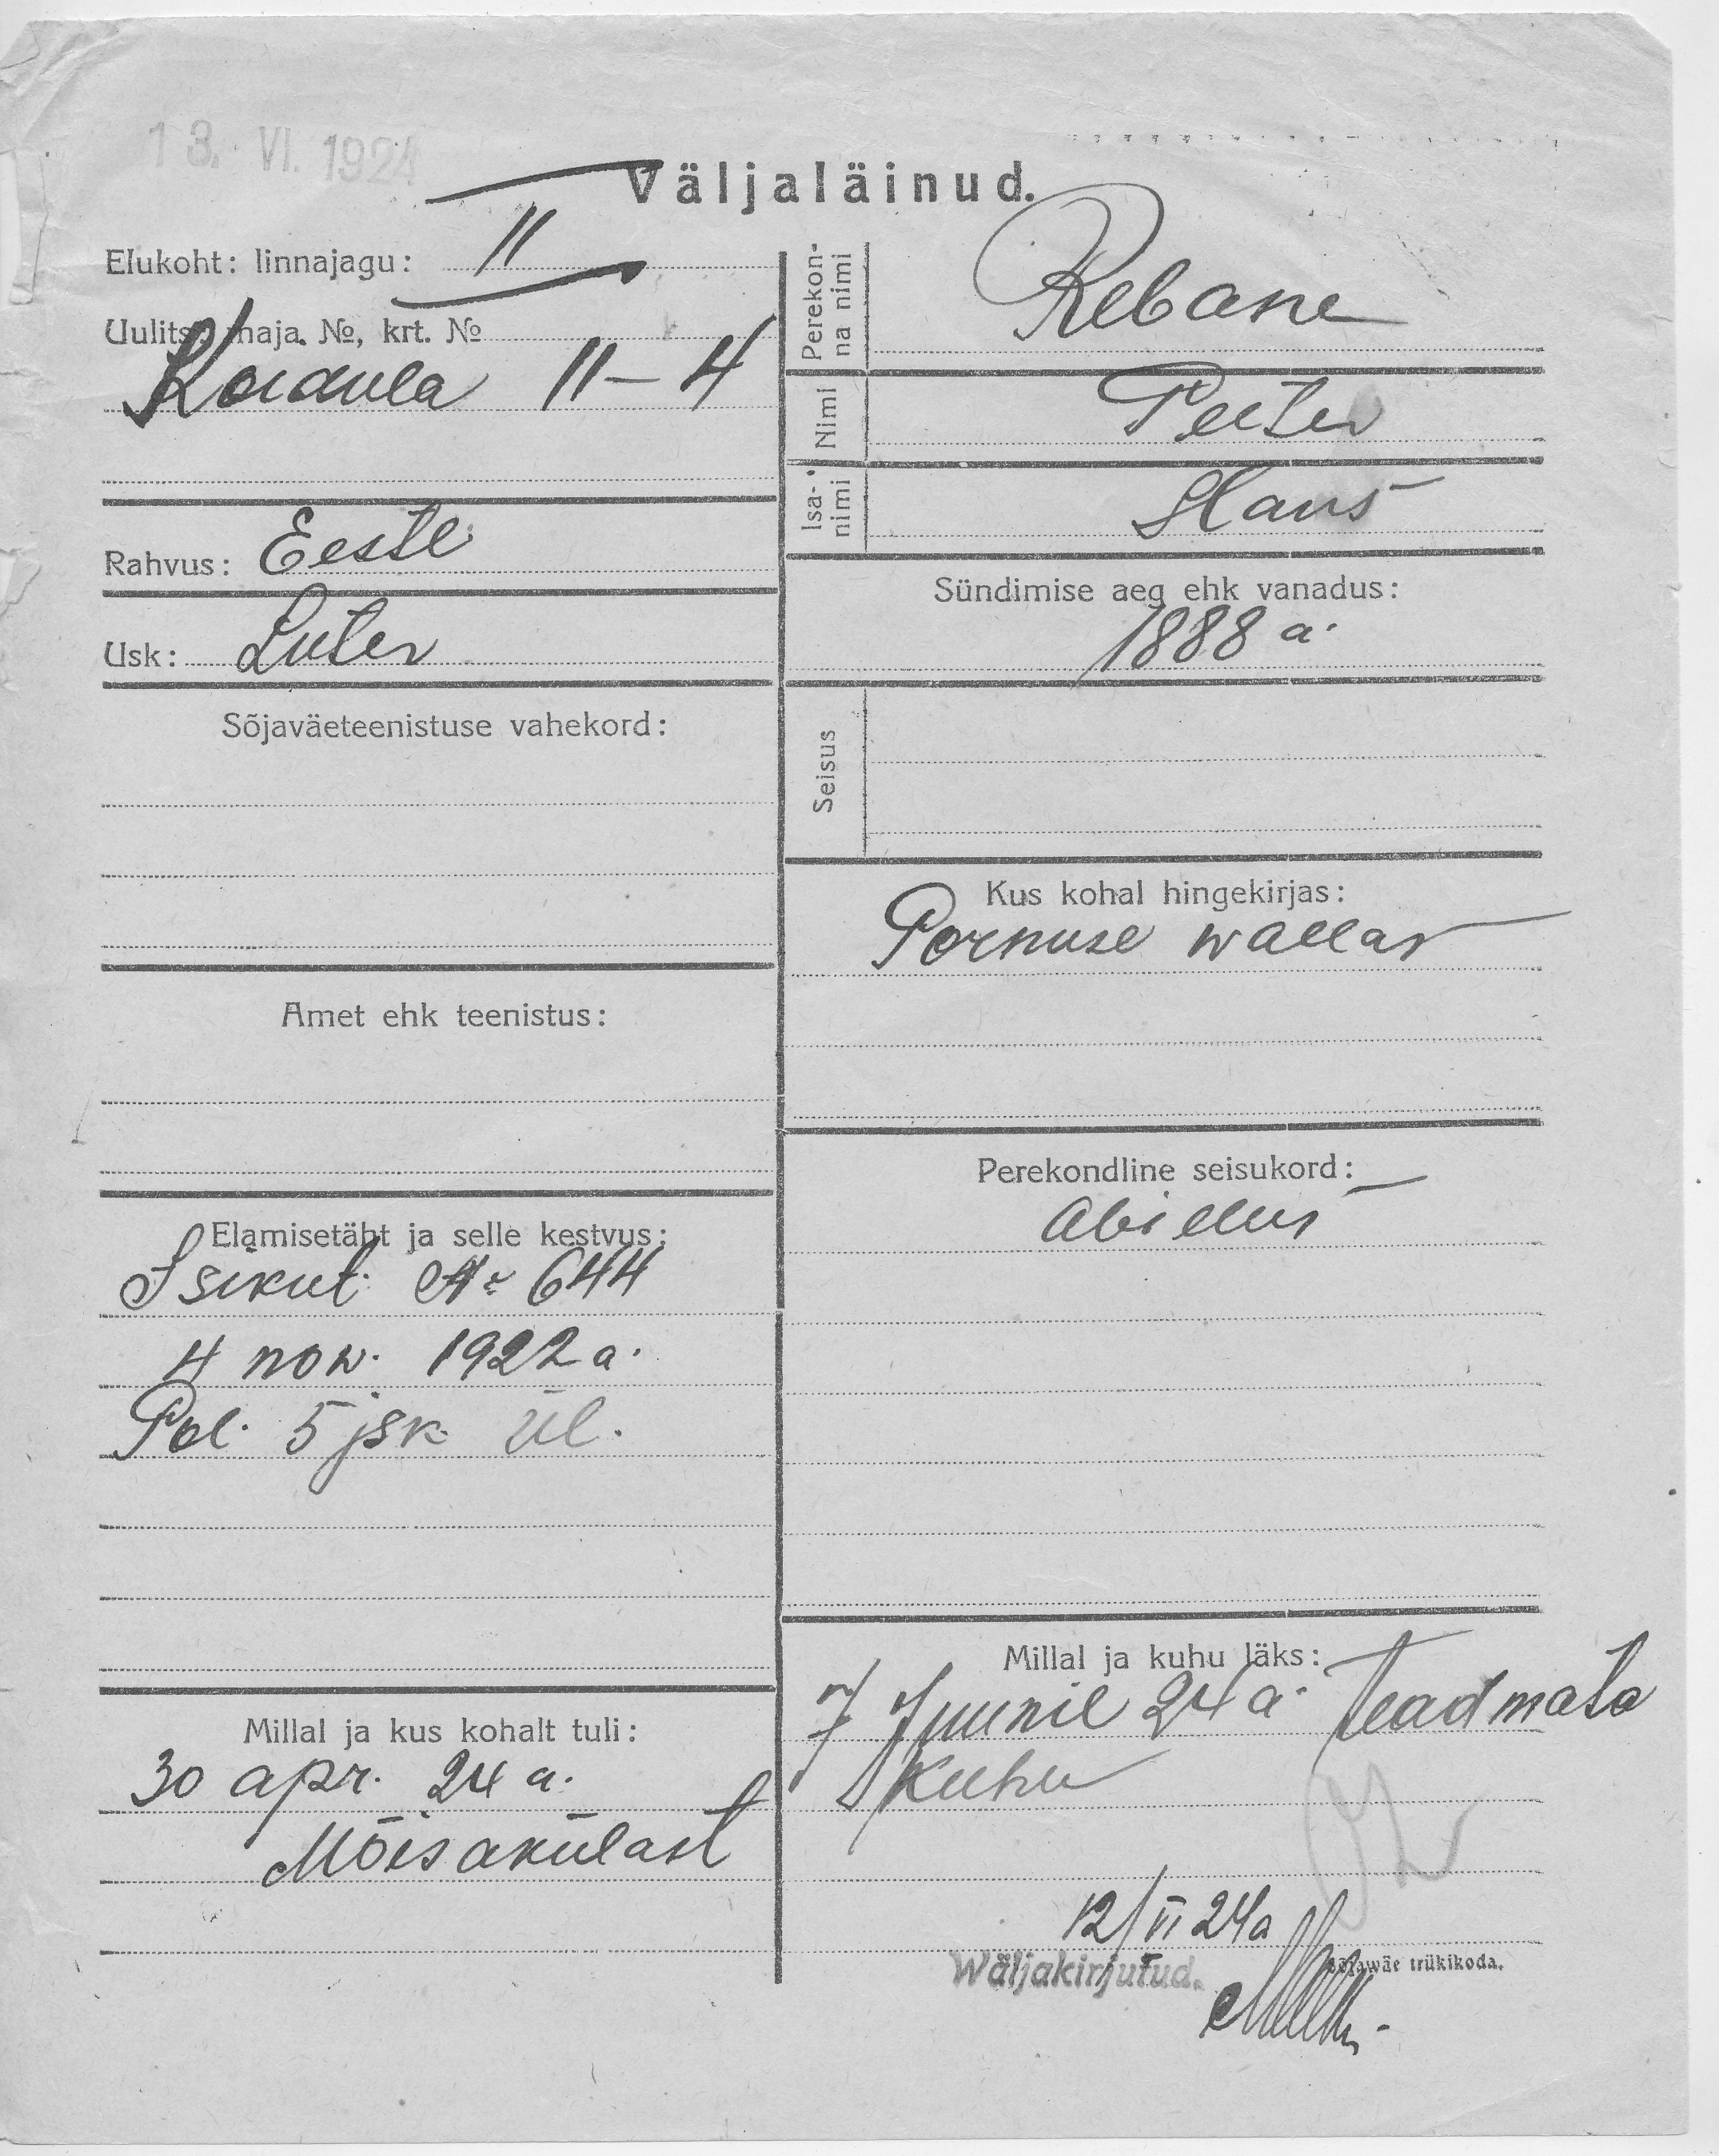 13. VI. 1924
Väljaläinud.
Elukoht: linnajagu: II
Uulits, maja. №, krt. №
Koidula 11-4
Rahvus: Eesti
Usk: Luter
Sõjaväeteenistuse vahekord:
Amet ehk teenistus:
Elamisetäht ja selle kestvus:
Isikut. № 644
4 now. 1922 a.
Pol. 5 jsk. ül.
Millal ja kus kohalt tuli:
30 apr. 24 a.
Mõisakülast
Perekon-
na nimi
Rebane
Nimi
Peeter
Isa-
nimi
Hans
Sündimise aeg ehk vanadus:
1888 a.
Seisus
Kus kohal hingekirjas:
Pornuse wallas
Perekondline seisukord:
Abielus
Millal ja kuhu läks:
7 Juunil 24 a. teadmata
kuhu
12/VI 24a
Wäljakirjutud.
Sõjawäe trükikoda.